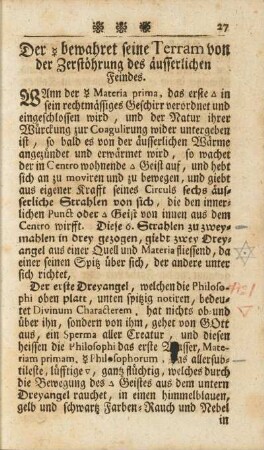 ❋ ❋ ❋ 27
Der ☿ bewahret seine Terram von
der Zerstöhrung des äusserlichen
Feindes.
WAnn der ☿ Materia prima, das erste △ in
sein rechtmässiges Geschirr verordnet und
eingeschlossen wird, und der Natur ihrer
Würckung zur Coagulirung wider untergeben
ist, so bald es von der äusserlichen Wärme
angezündet und erwärmet wird, so wachet
der in Centro wohnende △ Geist auf, und hebt
sich an zu moviren und zu bewegen, und giebt
aus eigener Krafft seines Circuls sechs äus-
serliche Strahlen von sich, die den innerli-
chen Punct oder △ Geist von innen aus dem
Centro wirfft. Diese 6. Strahlen zu zwey-
mahlen in drey gezogen, giebt zwey Drey-
angel aus einer Quell und Materia fliessend, da
einer seinen Spitz über sich, der andere unter
sich richtet,
Der erste Dreyangel, welchen die Philoso-
phi oben platt, unten spitzig notiren, bedeu-
tet Divinum Characterem, hat nichts ob und
über ihn, sondern von ihm, gehet von GOtt
aus, ein Sperma aller Creatur, und diesen
heissen die Philosophi das erste Wasser, Mate-
riam primam, ☿ Philosophorum, das allersub-
tileste, lüfftige ▽, gantz flüchtig, welches durch
die Bewegung des △ Geistes aus dem untern
Dreyangel rauchet, in einen himmelblauen,
gelb und schwartz Farben-Rauch und Nebel
in